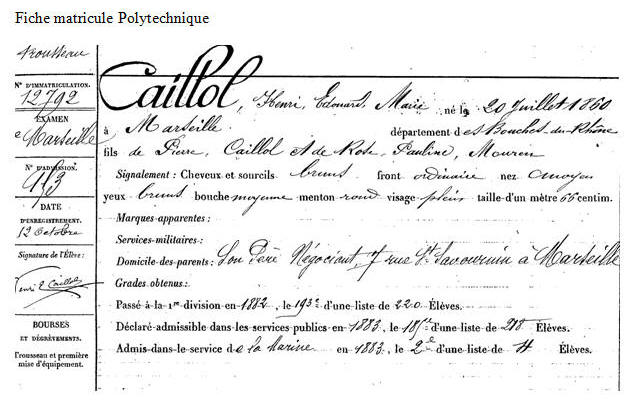 Fiche matricule Polytechnique
Trousseau
N° D'IMMATRICULATION.
12792
EXAMEN
à Marseille
N° D'ADMISSION.
DATE
D'ENREGISTREMENT.
12 Octobre
Signature de l'Élève:
Henri E Caillol
BOURSES
ET DÉGRÈVEMENTS.
Trousseau et première
mise d'équipement.
Caillol, Henri, Edouard, Marie né le 20 Juillet 1860
à Marseille département des Bouches-du-Rhône
fils de Pierre, Caillol et de Rose, Pauline, Mouren
Signalement: Cheveux et sourcils bruns front ordinaire nez moyen
yeux bruns bouche moyenne menton rond visage plein taille d'un mètre 66 centim.
Marques apparentes:
Services militaires:
Domicile des parents: Son Père Négociant, 7 rue St Savournin à Marseille
Grades obtenus:
Passé à la 1re division en 1882, le 193e d'une liste de 220 Élèves.
Déclaré admissible dans les services publics en 1883, le d'une liste de 218 Élèves.
Admis dans le service de la Marine en 1883, le 2e d'une liste de 4 Élèves.